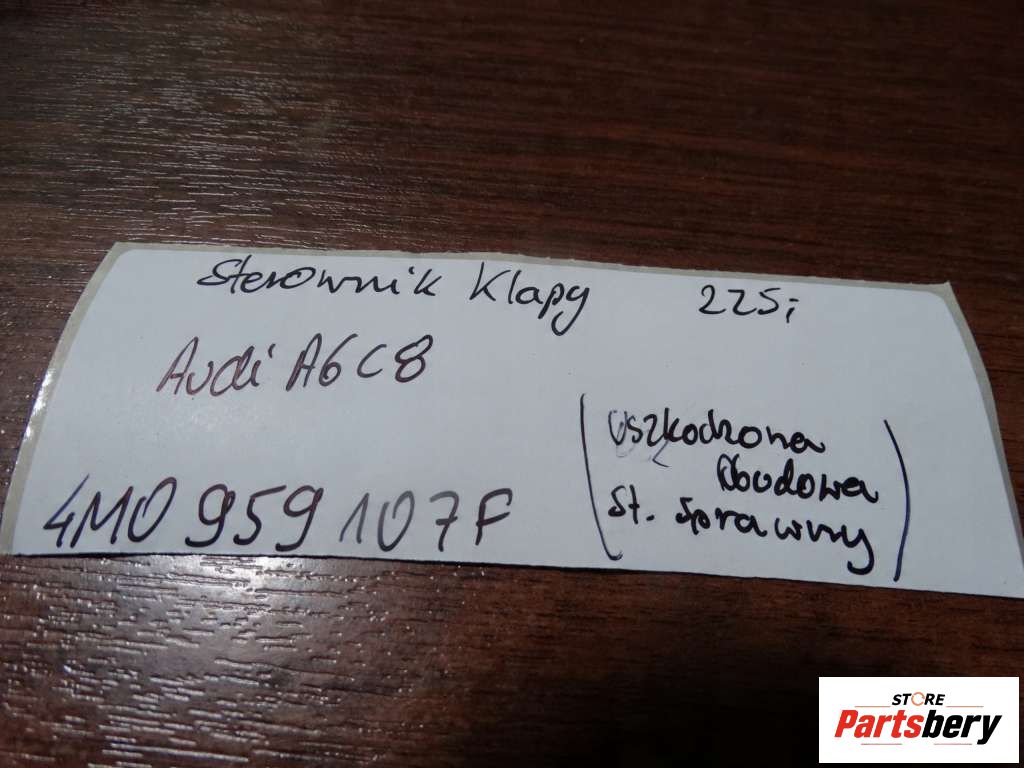 Sterownik Klapy 225;
Audi A6 C8
(Uszkodzona
Obudowa
St. Sprawny)
4M0 959 107F
STORE
Partsbery